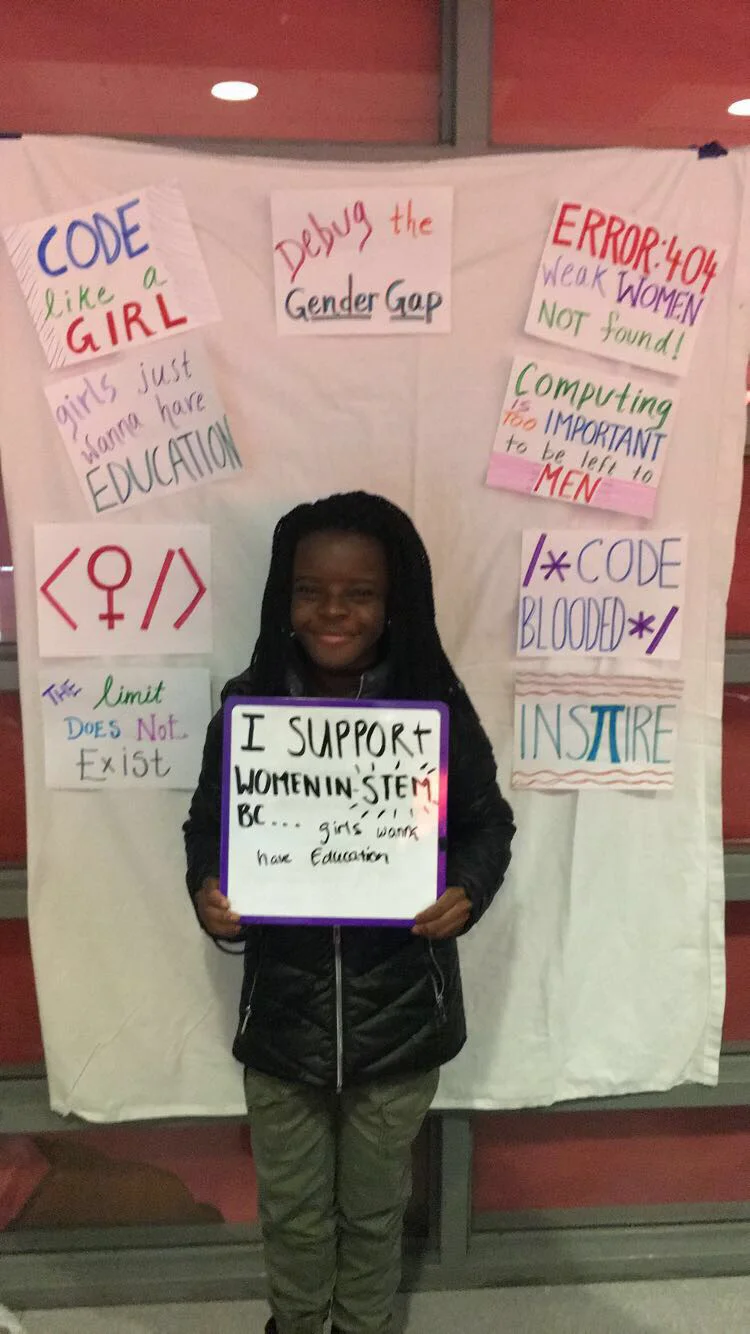 CODE
like a
GIRL
Debug the
Gender Gap
ERROR:404
Weak WOMEN
NOT found!
girls just
wanna have
EDUCATION
Computing
IS
TOO IMPORTANT
to be left to
MEN
<♀/>
/*CODE
BLOODED*/
THE limit
DOES Not
Exist
INSπIRE
I SUPPORT
WOMEN IN STEM
BC... girls wanna
have Education